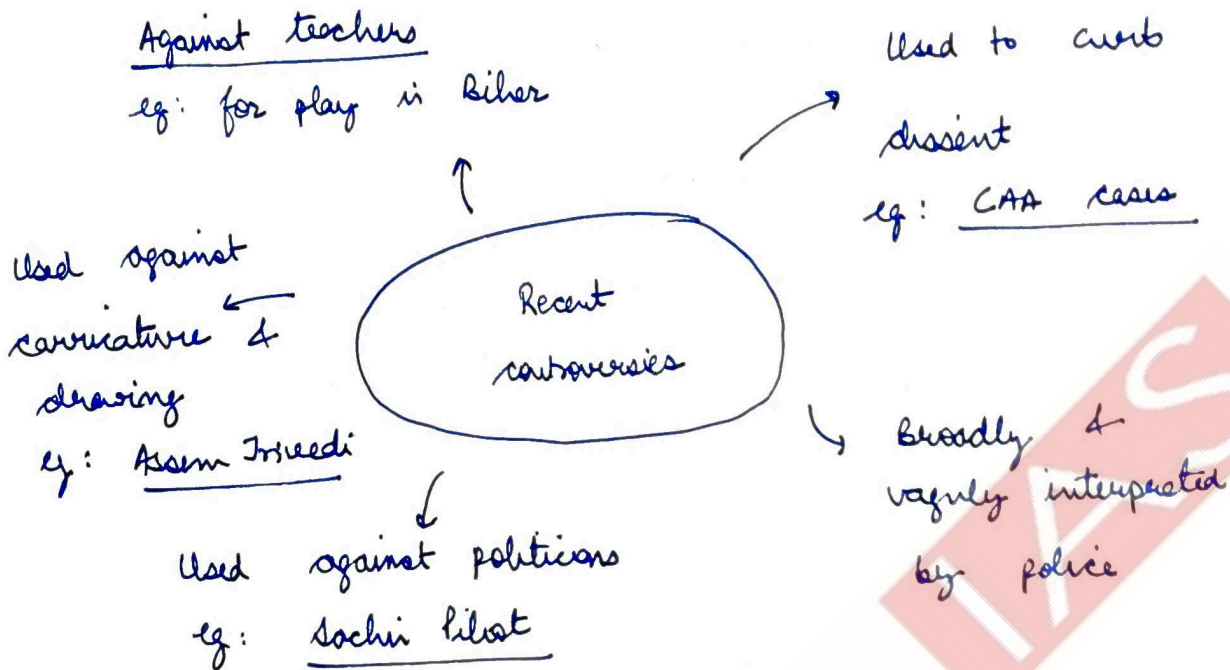 Against teachers
eg: for play in Bihar
Used to curb
dissent
eg: CAA cases
Used against
carricature &
drawing
eg: Assem Trivedi
Recent
controversies
Broadly &
vaguely interpreted
by police
Used against politicians
eg: Sachin Pilot
IAS